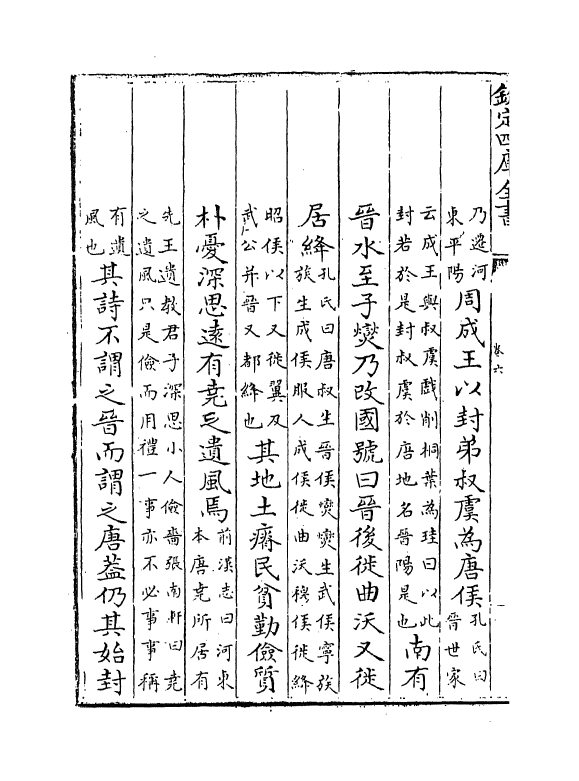 欽定四庫全書
卷六
乃遷河東平陽周成王以封弟叔虞為唐侯孔氏曰晉世家
云成王與叔虞戲削桐葉為珪曰以此封若於是封叔虞於唐地名晉陽是也南有
晉水至子燮乃改國號曰晉後徙曲沃又徙
居絳孔氏曰唐叔生晉侯燮燮生武侯寧族族生成侯服人成侯徙曲沃穆侯徙絳
昭侯以下又徙翼及武公并晉又都絳也其地土瘠民貧勤儉質
朴憂深思遠有堯之遺風焉前漢志曰河東本唐堯所居有
先王遺教君子深思小人儉嗇張南軒曰堯之遺風只是儉而用禮一事亦不必事事稱
有遺風也其詩不謂之晉而謂之唐蓋仍其始封